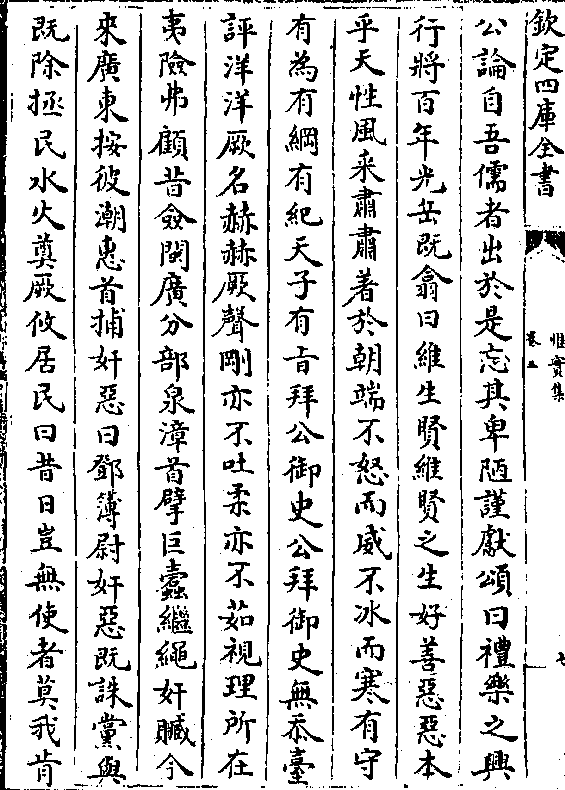 欽定四庫全書
惟實集
卷五
七
公論自吾儒者出於是忘其卑陋謹獻頌曰禮樂之興
行將百年光岳既翕曰維生賢維賢之生好善惡惡本
乎天性風采肅肅著於朝端不怒而威不冰而寒有守
有為有綱有紀天子有㫖拜公御史公拜御史無忝臺
評洋洋厥名赫赫厥聲剛亦不吐柔亦不茹視理所在
夷險弗顧昔僉閩廣分部泉漳首擘巨蠹繼繩奸贓今
來廣東按彼潮惠首捕奸惡曰鄧簿尉奸惡既誅黨與
既除拯民水火奠厥攸居民曰昔日豈無使者莫我肯